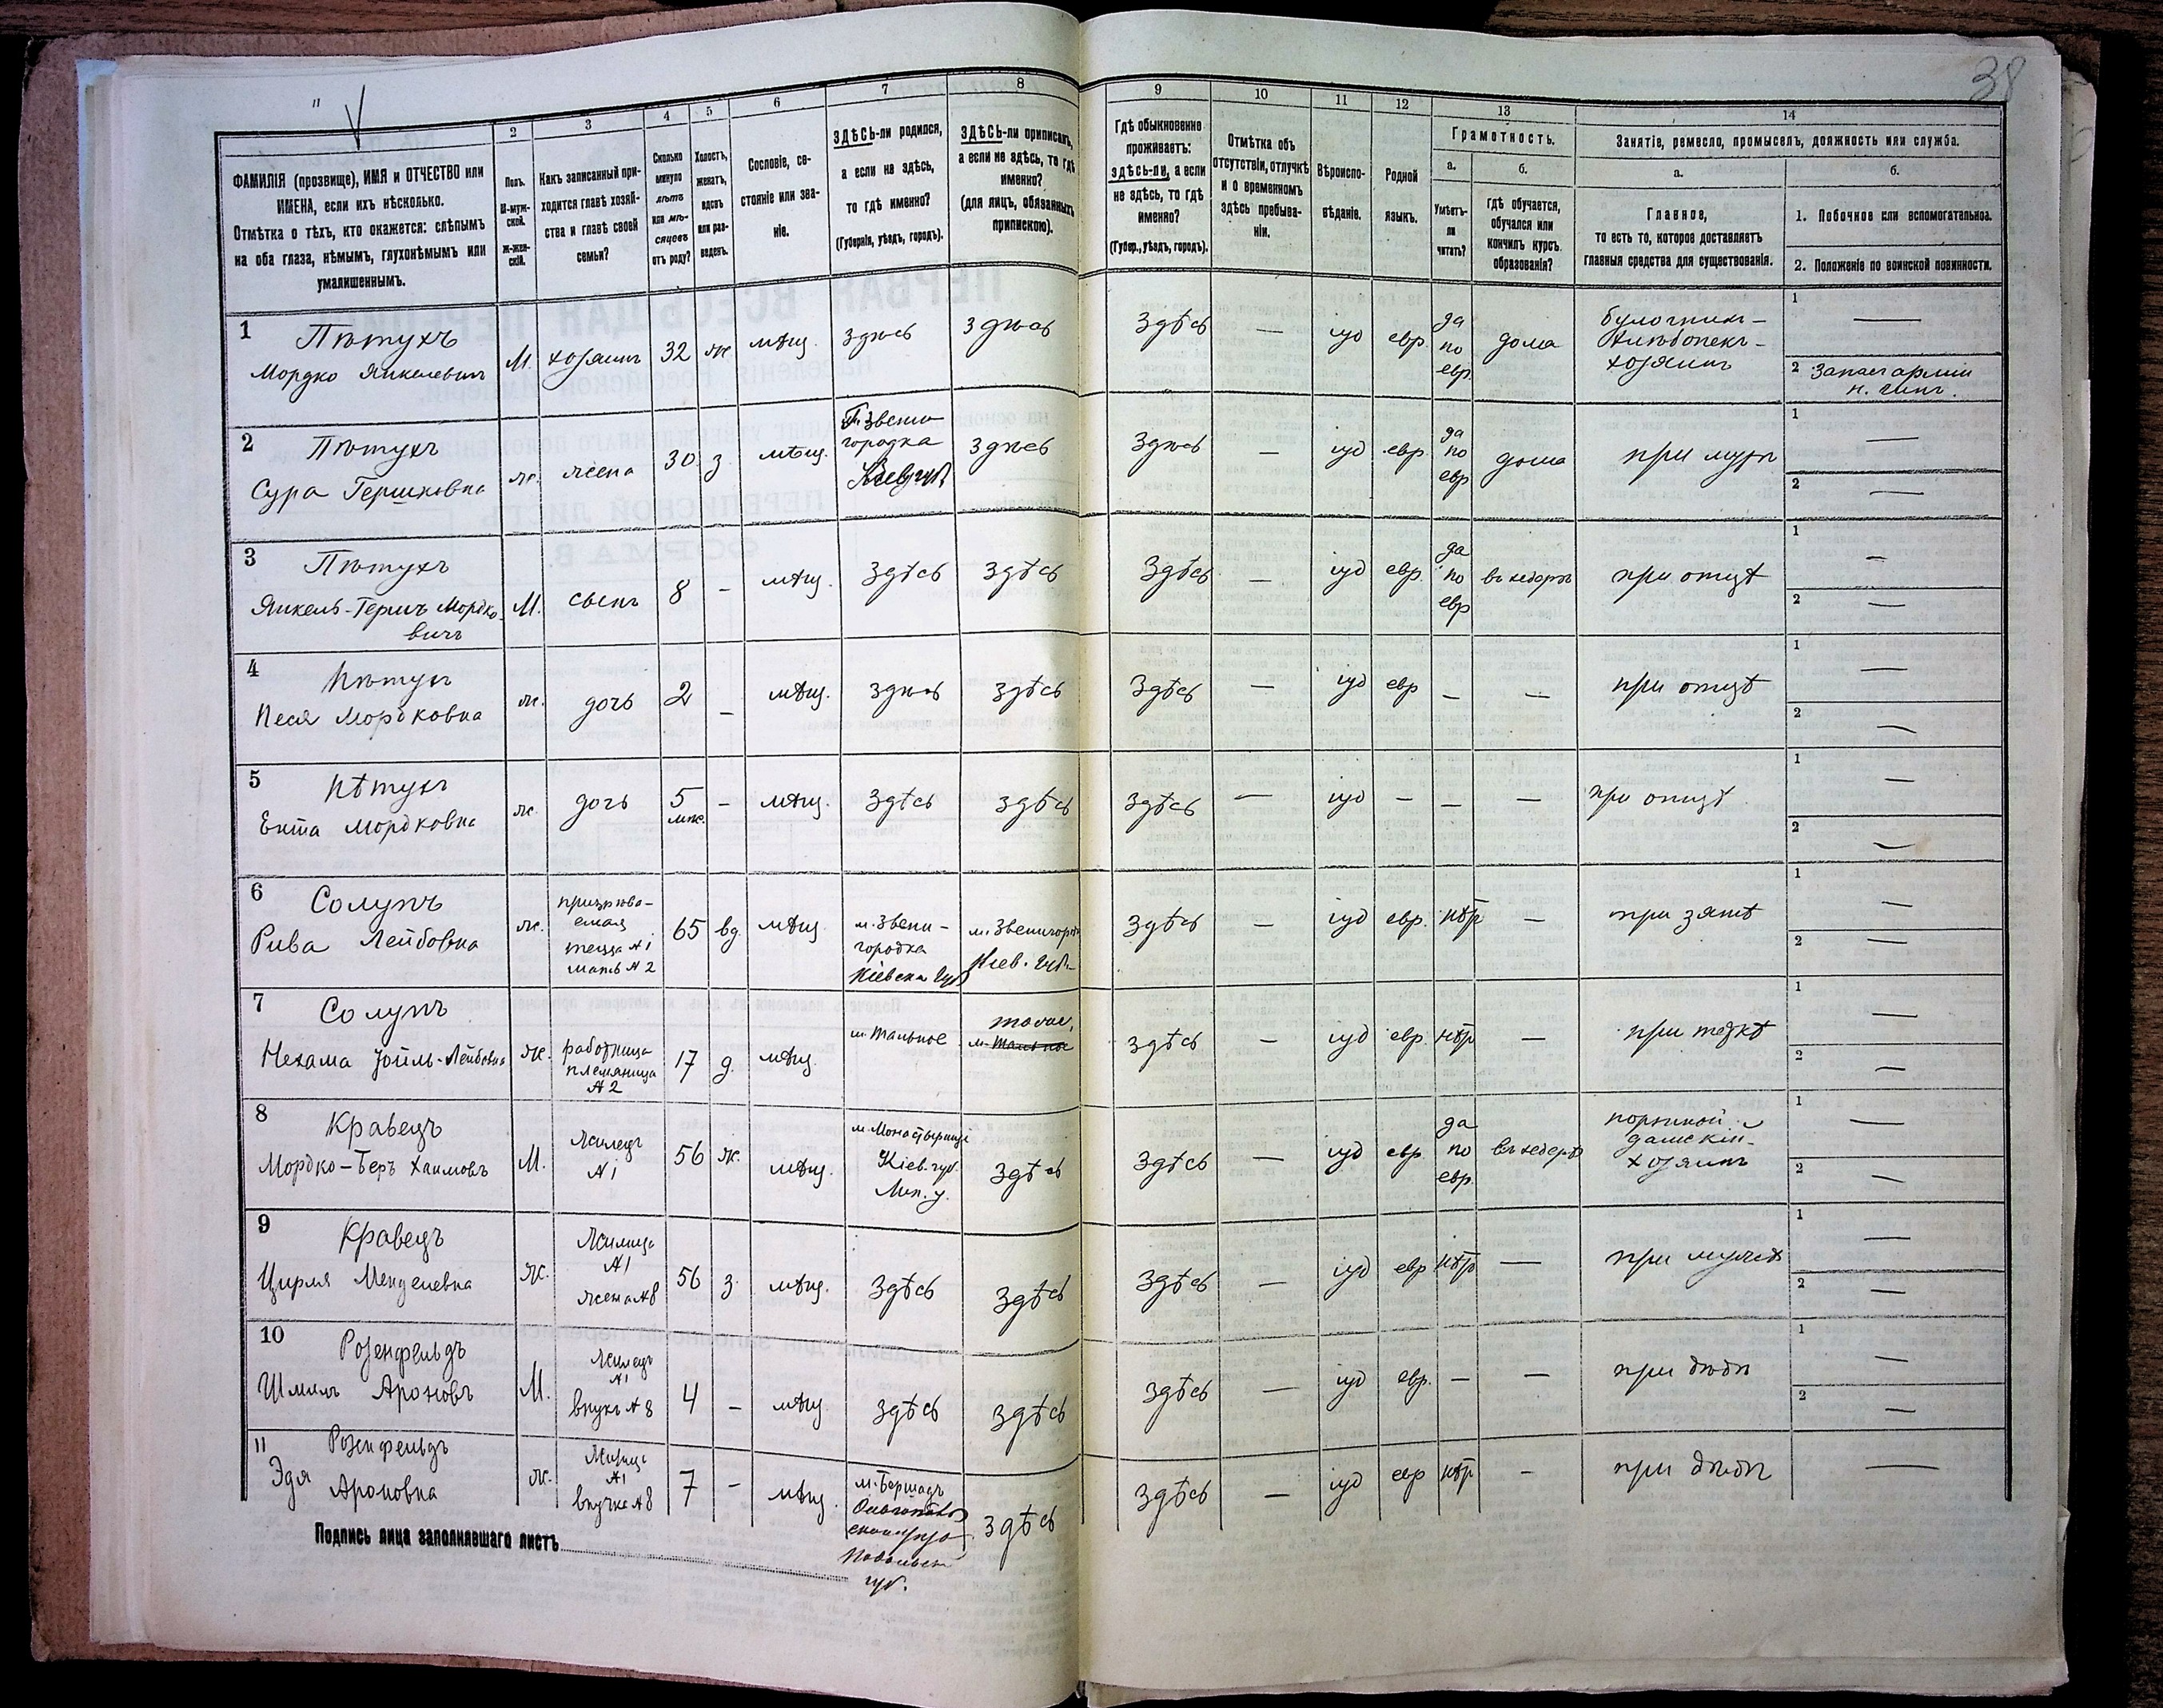 38
"
2
3
4
5
6
7
8
9
10
11
12
13
14
ФАМИЛІЯ (прозвище), ИМЯ и ОТЧЕСТВО или
ИМЕНА, если ихъ нѣсколько.
Отмѣтка о тѣхъ, кто окажется: слѣпымъ
на оба глаза, нѣмымъ, глухонѣмымъ или
умалишеннымъ.
Полъ.
М-муж-
ской.
Ж-жен-
скій.
Какъ записанный при-
ходится главѣ хозяй-
ства и главѣ своей
семьи?
Сколько
минуло
лѣтъ
или мѣ-
сяцевъ
отъ роду?
Холостъ,
женатъ,
вдовъ
или раз-
веденъ.
Сословіе, со-
стояніе или зва-
ніе.
ЗДѢСЬ-ли родился,
а если не здѣсь,
то гдѣ именно?
(Губернія, уѣздъ, городъ).
ЗДѢСЬ-ли приписанъ,
а если не здѣсь, то гдѣ
именно?
(для лицъ, обязанныхъ
припискою).
Гдѣ обыкновенно
проживаетъ:
здѣсь-ли, а если
не здѣсь, то гдѣ
именно?
(Губер., уѣздъ, городъ).
Отмѣтка объ
отсутствіи, отлучкѣ
и о временномъ
здѣсь пребыва-
ніи.
Вѣроиспо-
вѣданіе.
Родной
языкъ.
Грамотность.
а.
Умѣетъ-
ли
читать?
б.
гдѣ обучается,
обучался или
кончилъ курсъ
образованія?
Занятіе, ремесло, промыселъ, должность или служба.
а.
Главное,
то есть то, которое доставляетъ
главныя средства для существованія.
б.
1. Побочное или вспомогательное.
2. Положеніе по воинской повинности.
1 Пѣтухъ
Мордко Янкелевичъ
М. хозяинъ 32 ж мѣщ. здѣсь здѣсь
Здѣсь — іуд евр да по евр дома
булочникъ-
хлѣбопекъ-
хозяинъ
1 —
2 Запаса арміи
н. чинъ.
2 Пѣтухъ
Сура Гершковна
ж. жена 30 з мѣщ.
г. Звени-
городка
здѣсь
Здѣсь — іуд евр да по евр дома при мужѣ
1 —
2 —
3 Пѣтухъ
Янкель-Гершъ Мордко-
вичъ
М. сынъ 8 - мѣщ. здѣсь здѣсь
Здѣсь — іуд евр да по евр въ хедерѣ при отцѣ
1 —
2 —
4 Пѣтухъ
Песя Мордковна
ж. дочь 2 — мѣщ. здѣсь здѣсь
Здѣсь — іуд евр — — при отцѣ
1 —
2 —
5 Пѣтухъ
Ента Мордковна
ж. дочь 5 мѣс. - мѣщ. здѣсь здѣсь
здѣсь — іуд — — — при отцѣ
1 —
2 —
6
Рива Лейбовна
ж.
призрѣва-
емая
теща №1
мать №2
65 вд. мѣщ
м. Звени-
городка
Кіевск. губ
м. Звенигород
Кіев. губ.
Здѣсь — іуд евр. нѣт — при зятѣ
1 —
2 —
7
Нехама Іойль-Лейбовна
ж.
работница
племяница
№2
17 д. мѣщ. м. Тальное
здѣсь — іуд евр нѣт — при теткѣ
1 —
2 —
8 Кравецъ
Мордко-Беръ Хаимовъ
М.
Жилецъ
№1
56 ж. мѣщ.
м. Монастырище
Кіев. губ.
Лип. у.
здѣсь
Здѣсь — іуд евр. да по евр. въ хедерѣ
портной
дамскій-
хозяинъ
1 —
2 —
9 Кравецъ
Цирля Менделевна
ж.
Жилица
№1
жена №8
56 з. мѣщ. здѣсь здѣсь
здѣсь — іуд евр нѣт — при мужѣ
1 —
2 —
10 Розенфельдъ
Шмиль Ароновъ
М.
Жилецъ
№1
внукъ №8
4 - мѣщ здѣсь здѣсь
здѣсь — іуд евр. — — при дѣдѣ
1 —
2 —
11 Розенфельдъ
Эдя Ароновна
ж.
Жилица
№1
внучка №8
7 - мѣщ.
м. Бершадь
Подольск
губ.
здѣсь
здѣсь — іуд евр нѣт - при дѣдѣ —
Подпись лица заполнявшаго листъ